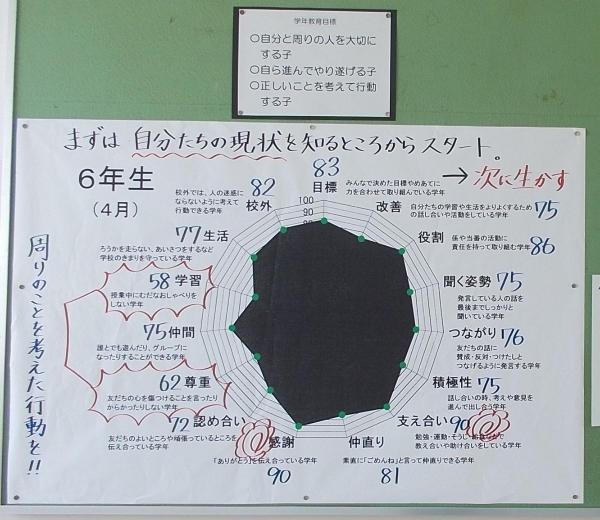 学年教育目標
○自分と周りの人を大切に
する子
○自ら進んでやり遂げる子
○正しいことを考えて行動
する子
まずは 自分たちの現状を知るところからスタート。
→次に生かす
6年生
(4月)
周りのことを考えた行動を!!
83
目標
みんなで決めた目標やめあてに
力を合わせて取り組んでいる学年
100
90
80
改善 75
自分たちの学習や生活をよりよくするため
の話し合いや活動をしている学年
役割 86
係や当番の活動に
責任を持って取り組む学年
聞く姿勢 75
発言している人の話を
最後までしっかりと
聞いている学年
つながり 76
友だちの話に
賛成・反対・つけたしと
つなげるように発言する学年
積極性 75
話し合いの時、考えや意見を
進んで出し合う学年
支え合い 90
勉強・運動・そうじ・
教え合いや助け合いをしている学年
仲直り
素直に「ごめんね」と言って仲直りできる学年
81
感謝
「ありがとう」を伝え合っている学年
90
72 認め合い
友だちのよいところや頑張っているところを
伝え合っている学年
62 尊重
友だちの心を傷つけることを言ったり
からかったりしない学年
75 仲間
誰とでも遊んだり、グループに
なったりすることができる学年
58 学習
授業中にむだなおしゃべりを
しない学年
77 生活
ろうかを走らない、あいさつをするなど
学校のきまりを守っている学年
82
校外
校外では、人の迷惑に
ならないように考えて
行動できる学年